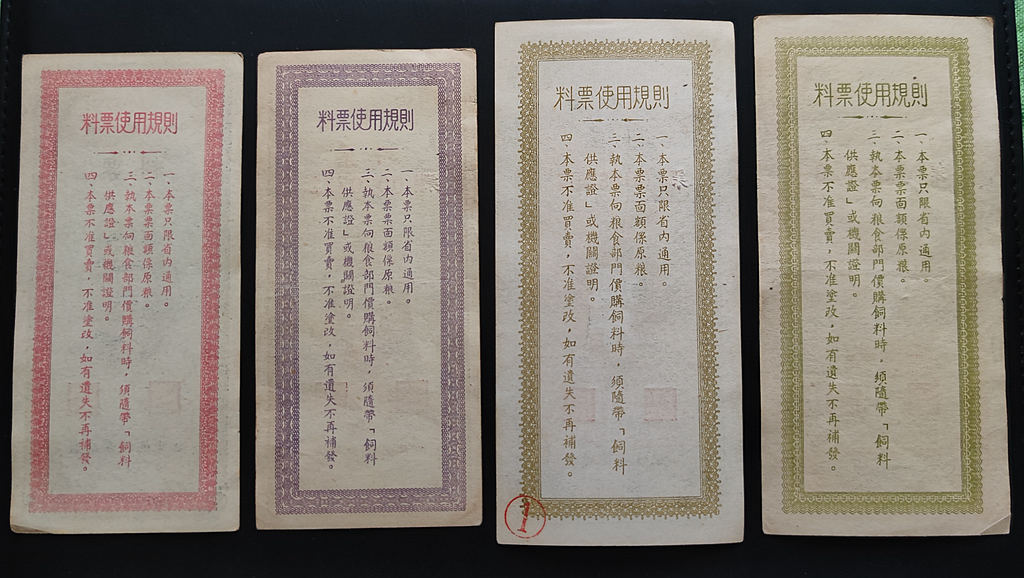 料票使用規則
一、本票只限省内通用。
二、本票票面額係原粮。
三、執本票向粮食部門價購飼料時，須隨帶「飼料
供應證」或機關證明。
四、本票不准買賣，不准塗改，如有遺失不再補發。
料票使用規則
一、本票只限省内通用。
二、本票票面額係原粮。
三、執本票向粮食部門價購飼料時，須隨帶「飼料
供應證」或機關證明。
四、本票不准買賣，不准塗改，如有遺失不再補發。
料票使用規則
一、本票只限省内通用。
二、本票票面額係原粮。
三、執本票向粮食部門價購飼料時，須隨帶「飼料
供應證」或機關證明。
四、本票不准買賣，不准塗改，如有遺失不再補發。
1
料票使用規則
一、本票只限省内通用。
二、本票票面額係原粮。
三、執本票向粮食部門價購飼料時，須隨帶「飼料
供應證」或機關證明。
四、本票不准買賣，不准塗改，如有遺失不再補發。